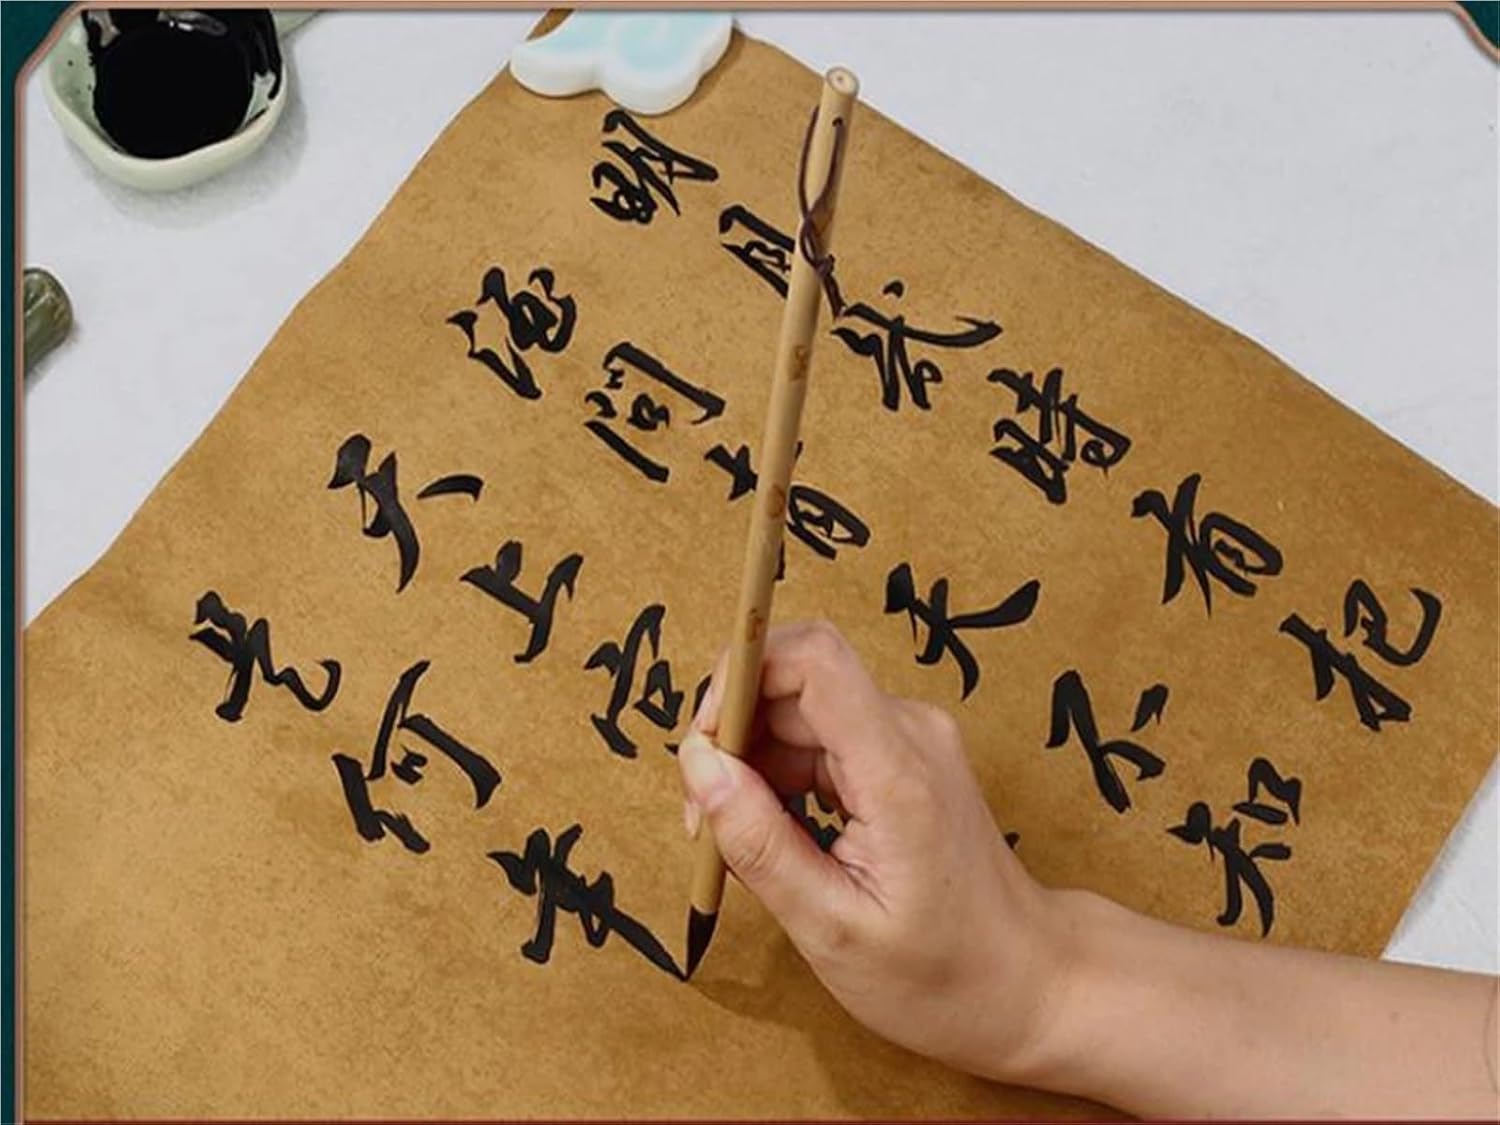 明月幾時有把
酒問青天不知
天上宫
是何年